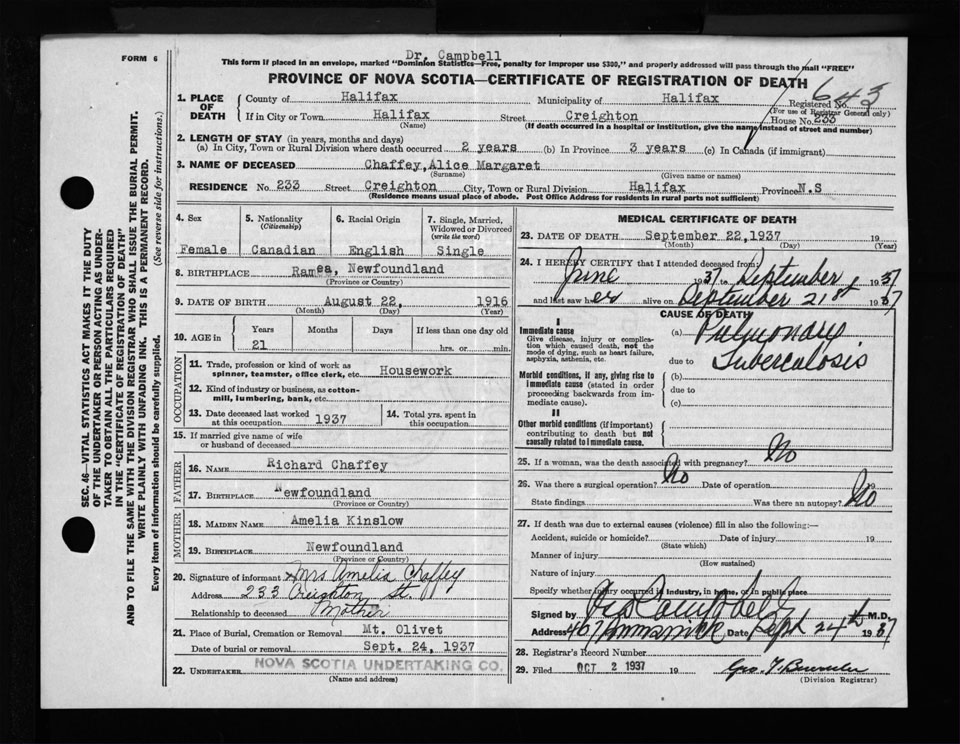 Dr. Campbell
FORM 6
This form if placed in an envelope, marked "Dominion Statistics—Free, penalty for improper use $300," and properly addressed will pass through the mail "FREE"
PROVINCE OF NOVA SCOTIA—CERTIFICATE OF REGISTRATION OF DEATH
643
1. PLACE OF DEATH
County of Halifax Municipality of Halifax Registered No.
(For use of Registrar General only)
If in City or Town Halifax Street Creighton House No. 233
(Name) (If death occurred in a hospital or institution, give the name instead of street and number)
2. LENGTH OF STAY (in years, months and days)
(a) In City, Town or Rural Division where death occurred 2 years (b) In Province 3 years (c) In Canada (if immigrant)
3. NAME OF DECEASED Chaffey, Alice Margaret
(Surname) (Given name or names)
RESIDENCE No. 233 Street Creighton City, Town or Rural Division Halifax Province N.S
(Residence means usual place of abode. Post Office Address for residents in rural parts not sufficient)
4. Sex
Female
5. Nationality
(Citizenship)
Canadian
6. Racial Origin
English
7. Single, Married, Widowed or Divorced
(write the word)
Single
8. BIRTHPLACE Ramea, Newfoundland
(Province or Country)
9. DATE OF BIRTH August 22, 1916
(Month) (Day) (Year)
10. AGE in
Years Months Days If less than one day old
21 hrs. or min.
OCCUPATION
11. Trade, profession or kind of work as
spinner, teamster, office clerk, etc. Housework
12. Kind of industry or business, as cotton-
mill, lumbering, bank, etc.
13. Date deceased last worked
at this occupation 1937
14. Total yrs. spent in
this occupation
15. If married give name of wife
or husband of deceased
FATHER
16. NAME Richard Chaffey
17. BIRTHPLACE Newfoundland
(Province or Country)
MOTHER
18. MAIDEN NAME Amelia Kinslow
19. BIRTHPLACE Newfoundland
(Province or Country)
20. Signature of informant x Mrs Amelia Chaffey
Address 233 Creighton St.
Relationship to deceased Mother
21. Place of Burial, Cremation or Removal Mt. Olivet
Date of burial or removal Sept. 24, 1937
22. UNDERTAKER NOVA SCOTIA UNDERTAKING CO.
(Name and address)
MEDICAL CERTIFICATE OF DEATH
23. DATE OF DEATH September 22, 1937 19
(Month) (Day) (Year)
24. I HEREBY CERTIFY that I attended deceased from
June 1937 to September 1937
and last saw her alive on September 21st 1937
CAUSE OF DEATH
I
Immediate cause
Give disease, injury or complica-
tion which caused death, not the
mode of dying, such as heart failure,
asphyxia, asthenia, etc.
(a) Pulmonary
due to Tuberculosis
Morbid conditions, if any, giving rise to
immediate cause (stated in order
proceeding backwards from im-
mediate cause).
(b)
due to
(c)
II
Other morbid conditions (if important)
contributing to death but not
causally related to immediate cause.
25. If a woman, was the death associated with pregnancy? No
26. Was there a surgical operation? No Date of operation
State findings Was there an autopsy? No
27. If death was due to external causes (violence) fill in also the following:—
Accident, suicide or homicide? Date of injury 19
(State which)
Manner of injury
(How sustained)
Nature of injury
Specify whether injury occurred in industry, in home, or in public place
Signed by Campbell M.D.
Address 407 Date Sept 24th 1937
28. Registrar's Record Number
29. Filed OCT 2 1937 19
(Division Registrar)
SEC. 46—VITAL STATISTICS ACT MAKES IT THE DUTY
OF THE UNDERTAKER OR PERSON ACTING AS UNDER-
TAKER TO OBTAIN ALL THE PARTICULARS REQUIRED
IN THE "CERTIFICATE OF REGISTRATION OF DEATH"
AND TO FILE THE SAME WITH THE DIVISION REGISTRAR WHO SHALL ISSUE THE BURIAL PERMIT.
WRITE PLAINLY WITH UNFADING INK. THIS IS A PERMANENT RECORD.
Every item of Information should be carefully supplied. (See reverse side for instructions.)